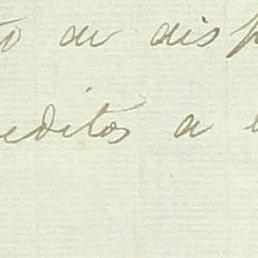 to de disp
editos a